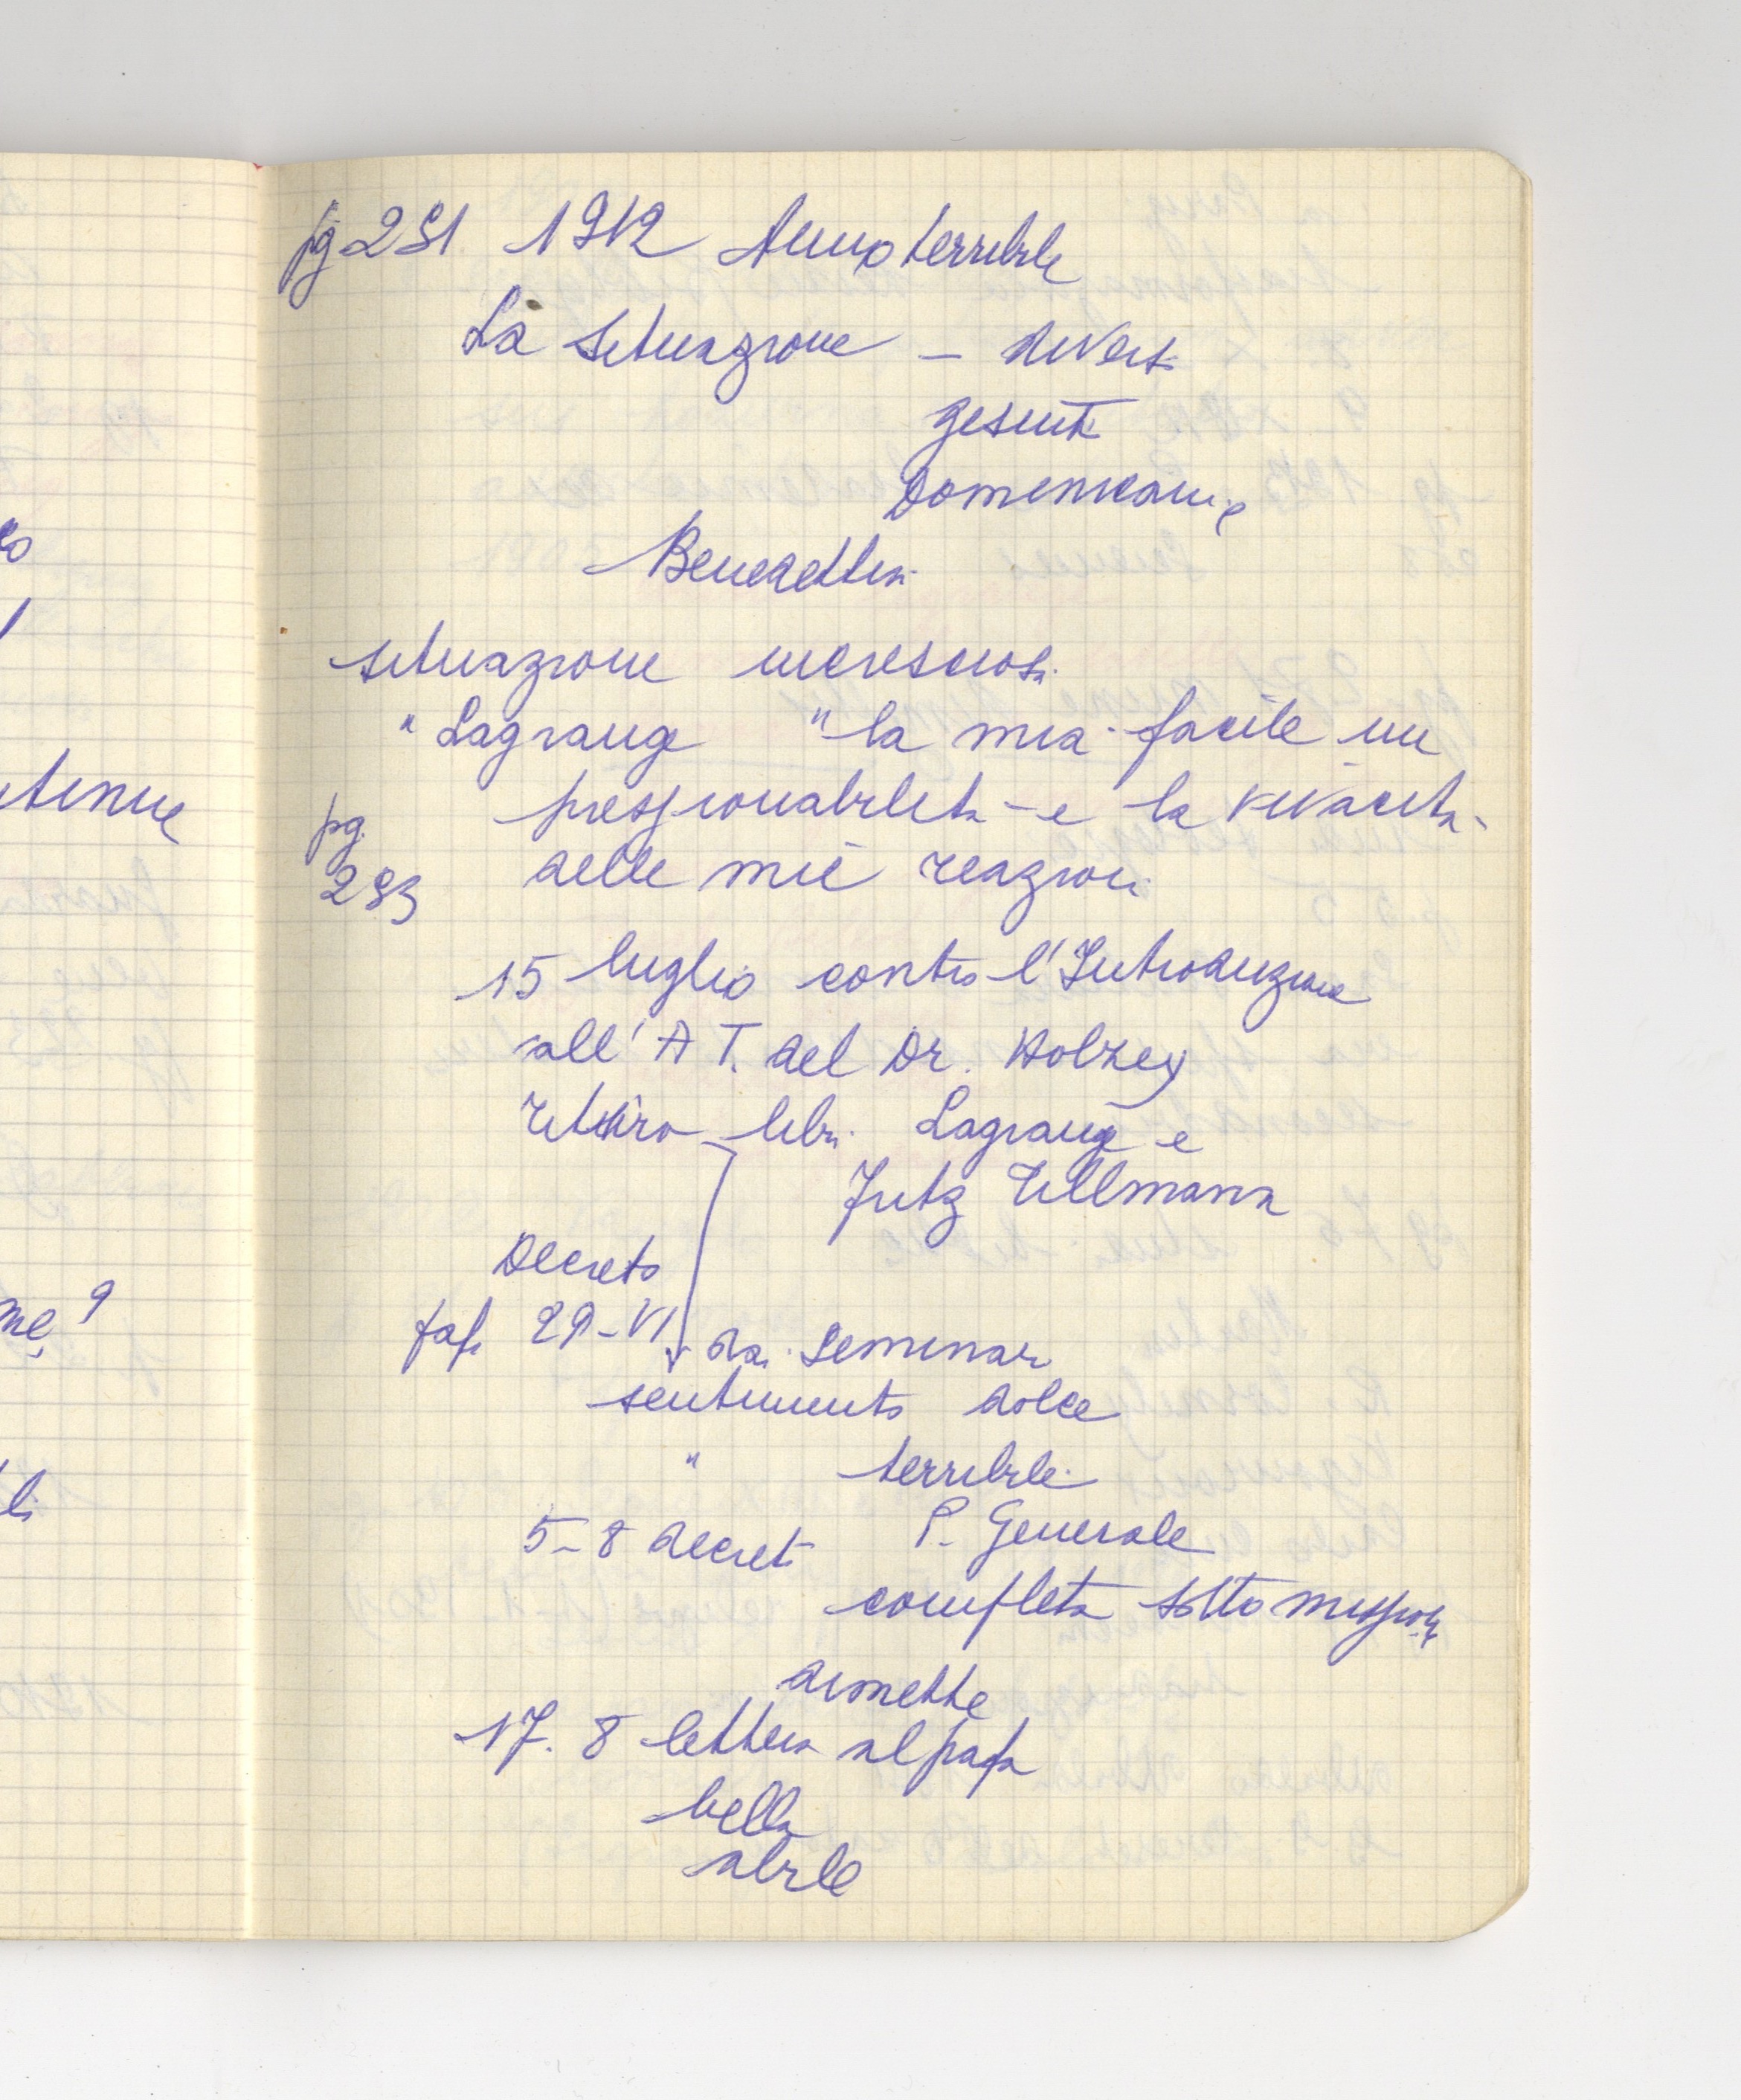 pg 291 1912 Anno terribile
La situazione - diversi
gesuiti
Domenicani e
Benedettini
situazione incresciosa
"Lagrange " la mia facile im
pressionabilità - e la vivacità
pg.
293 delle mie reazioni
15 luglio contro l'Introduzione
all' A T. del Dr. Holzey
ritiro libri Lagrange e
Fritz Tillmann
Decreto
29-VI dai seminari
sentimento dolce
" terribile
5-8 decreti P. Generale
completa sottomissione
dimette
17. 8 lettera al papa
bella
abile
tenue
me?
li